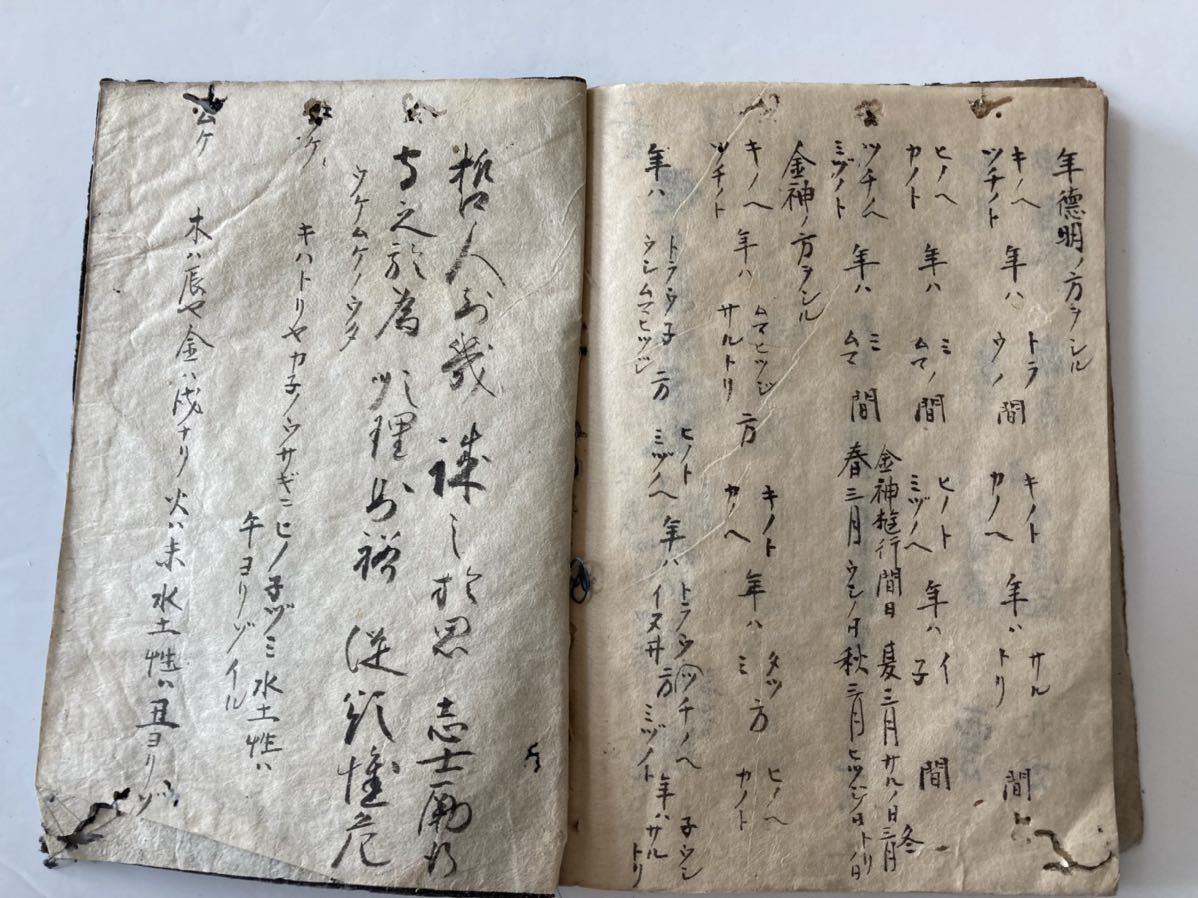 年德明ノ方ヲシル
キノヘ ツチノト 年ハ トラ ウノ 間 キノト カノヘ 年ハ サル トリ 間
ヒノヘ カノト 年ハ ミ ムマノ 間 ヒノト ミヅノヘ 年ハ イ 子 間
ツチノヘ ミヅノト 年ハ ミ ムマ 間
金神遊行間日 春三月 ウシノ日 夏三月 サルノ日 秋三月 ヒツジノ日 冬三月 トリノ日
金神ノ方ヲシル
キノヘ ツチノト 年ハ ムマヒツジ サルトリ 方 キノト カノヘ 年ハ タツ ミ 方 ヒノヘ カノト
年ハ トラウ子 ウシムマヒツジ 方 ヒノト ミヅノヘ 年ハ トラウ イヌ井 方 ツチノヘ ミヅノト 年ハ 子ウシ サルトリ
哲人知幾 誠之於思 志士勵行
守之於為 順理則裕 從欲惟危
ウケムケノウタ
ウケ キハトリヤカ子ノウサギニヒノ子ヅミ水土性ハ
午ヨリゾイル
ムケ 木ハ辰ヤ金ハ戌ナリ火ハ未水土性ハ丑ヨリゾ